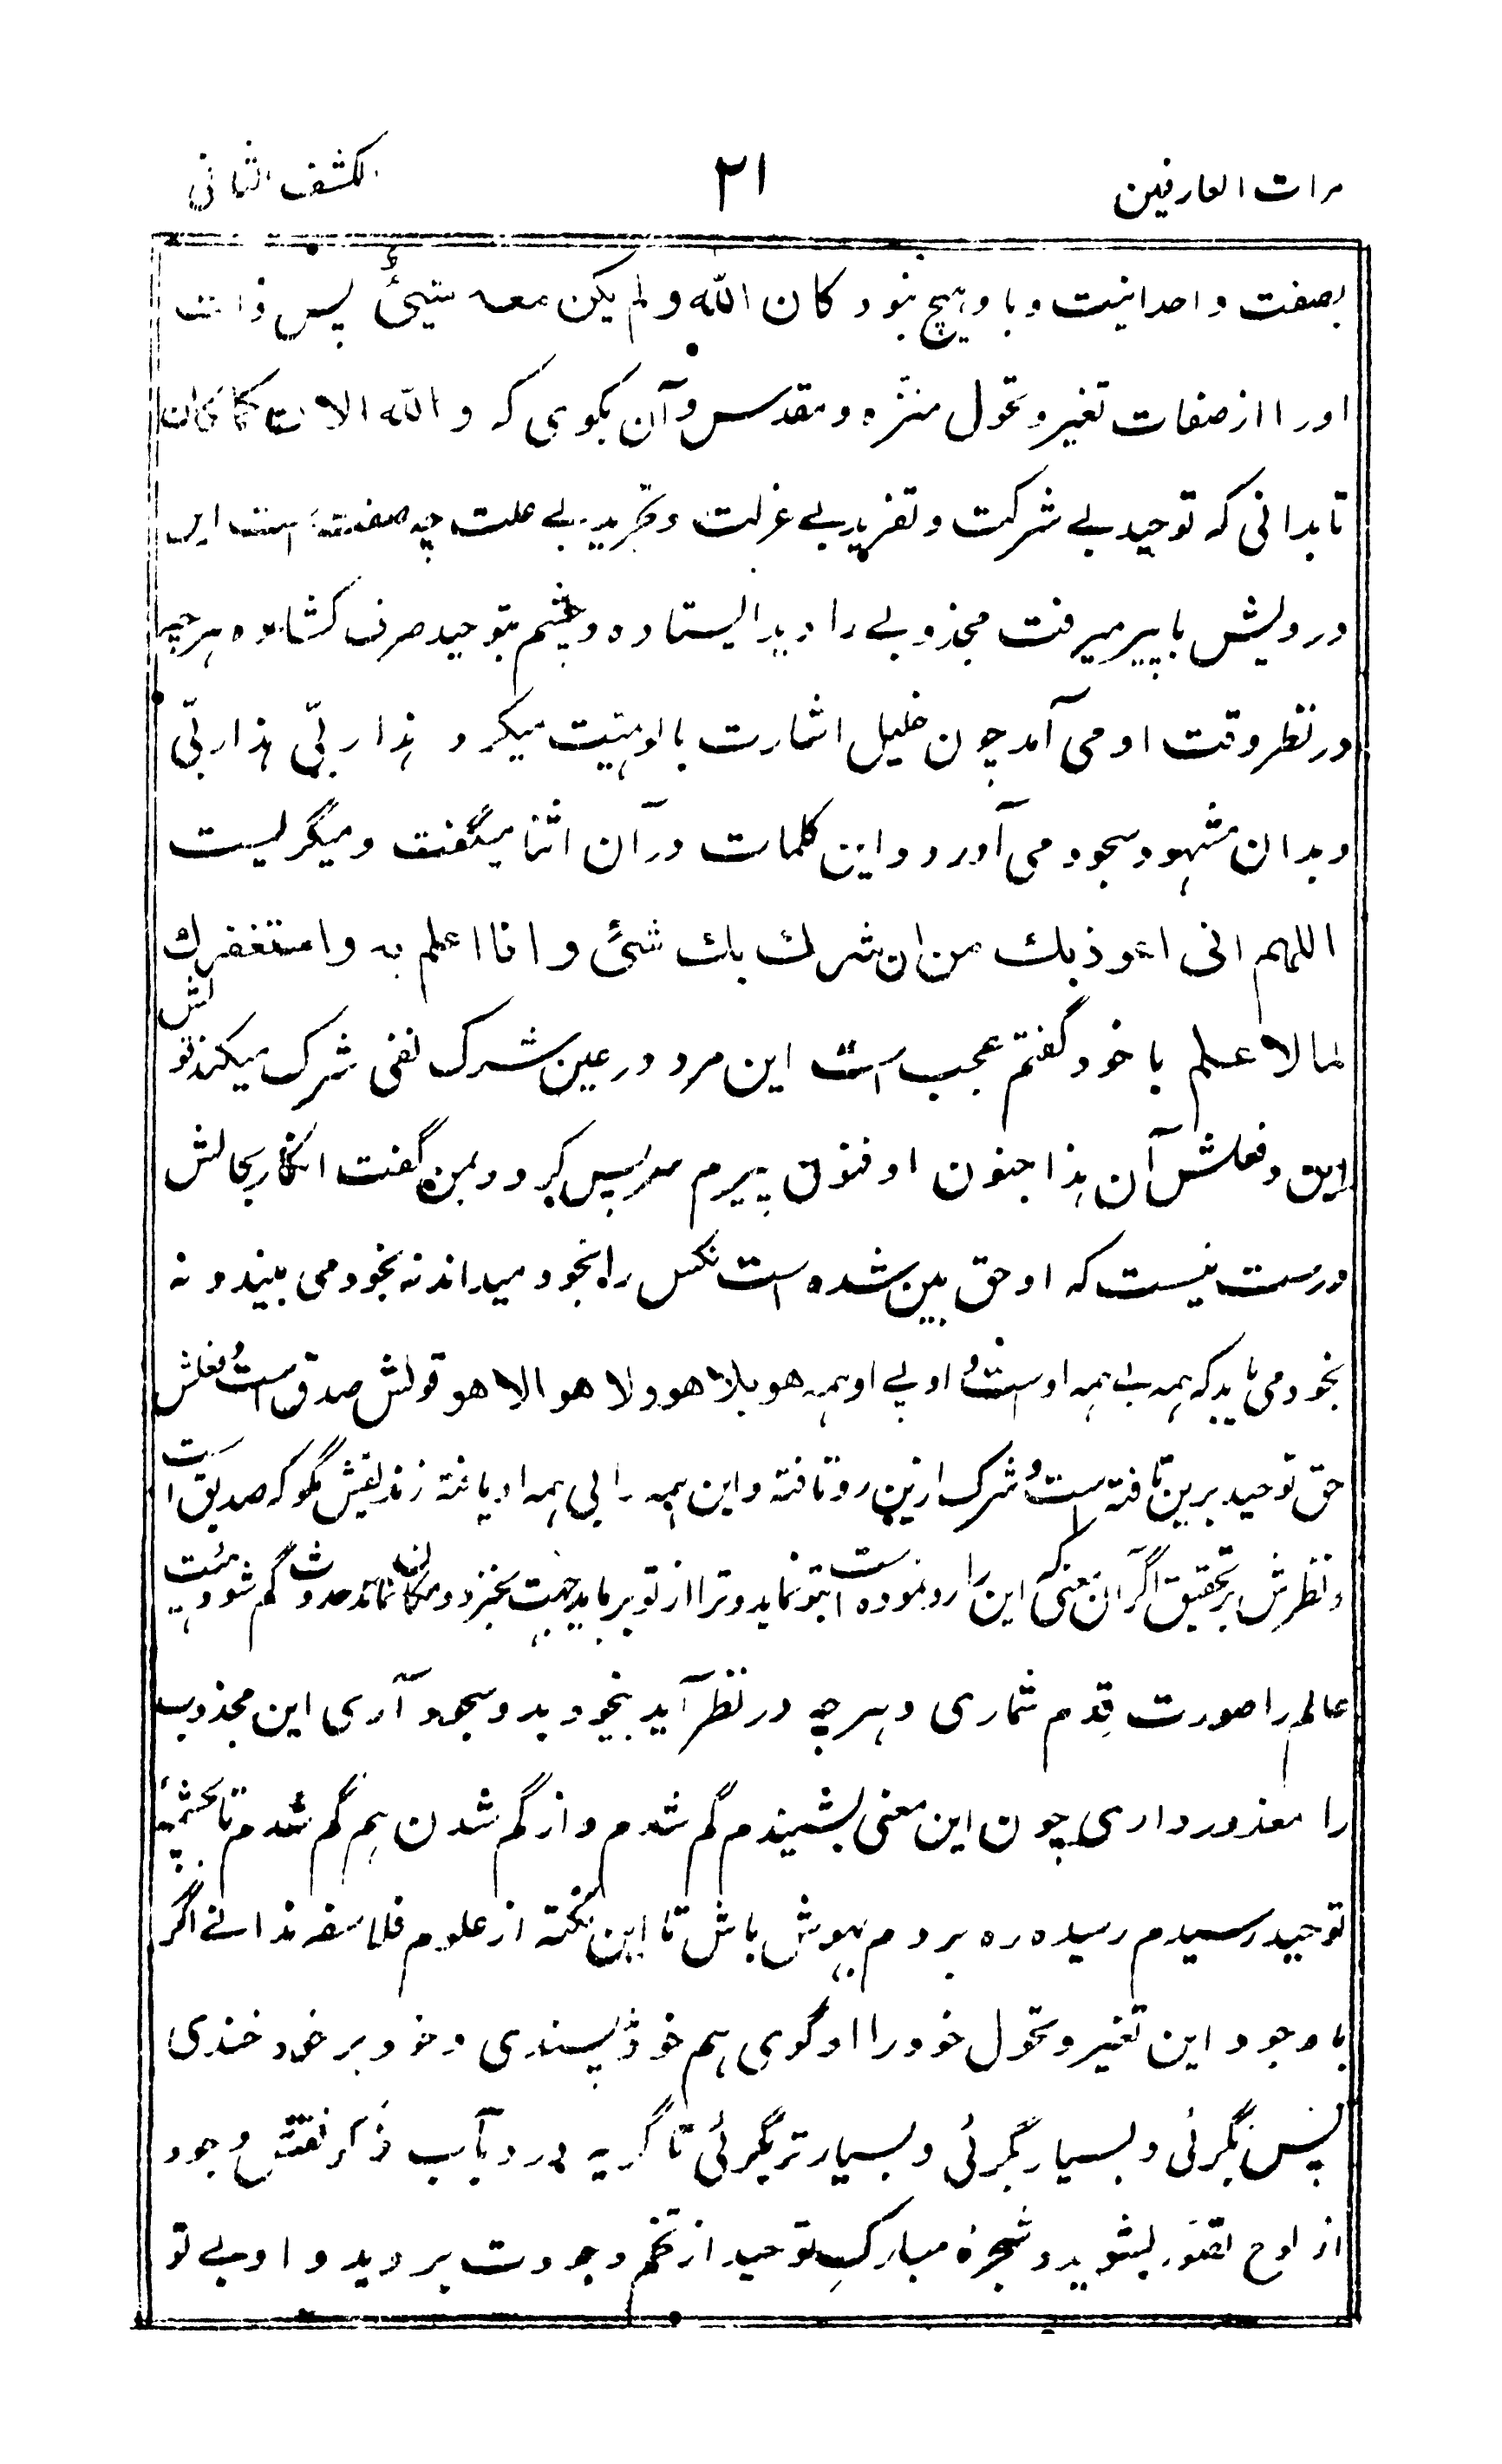 مرات العارفین ۲۱ الکشف الثانی
بصفت واحدانیت و با و ہیچ نبود کان اللہ ولم یکن معہ شیئٌ پس ذات
اورا از صفات تغیر و تحول منزہ و مقدس و آن بگوی کہ و اللہ الان کما کان
تا بدانی کہ توحید بے شرکت و تفرید بے عزلت و تجرید بے علت چہ صفت است این
درویش با پیر میرفت مجذوبے را دید ایستادہ و چشم بتوحید صرف کشادہ ہرچہ
در نظر وقت او می آمد چون خلیل اشارت بالوہیّت میکرد ہذا ربّی ہذا ربّی
و بدان مشہود سجود می آورد و این کلمات در آن اثنا میگفت و میگریست
اللہم انی اعوذبك من ان نشرك بك شئً و انا اعلم به و استغفرك
لما لا علم با خود گفتم عجب است این مرد در عین شرک نفی شرک میکند قولش
این و فعلش آن ہذا جنون او فنون پیرم سر پس کرد و بمن گفت انکار بحالش
درست نیست کہ او حق بین شدہ است نکس راہ بخود میداند نہ بخود می بیند و نہ
بخود می یابد کہ ہمہ بے ہمہ اوست و او بے او ہمہ هو بلا هو ولا هو الا هو قولش صدق است و فعلش
حق توحید برین تافتہ است و شرک ازین رو تافتہ و این ہمہ را بی ہمہ او یافتہ زندیقش مگو کہ صدیق است
و نظرش بر تحقیق اگر آن معنی کہ این را رو نمودہ است بتو نماید و ترا از تو برباید جہت بخیزد و مکان نماند حدوث گم شود ہیئت
عالم را صورت قِدم شماری و ہرچہ در نظر آید بیخود بدو سجود آری این مجذوب
را معذور داری چون این معنی بشنیدم گم شدم و از گم شدن ہم گم شدم تا بچشمہٴ
توحید رسیدم رسیدہ رہ بردم بہوش باش تا این نکتہ از علوم فلاسفہ ندانے اگر
با وجود این تغیر و تحول خود را او گوی ہم خود پسندی و خود بر خود خندی
پس بگرئی و بسیار بگرئی و بسیار تر بگرئی تا گریہ درد بآب ذکر نقش وجود
از لوح تصور بشوید و شجرہ مبارک توحید از تخم وجودت بروید و او بے تو